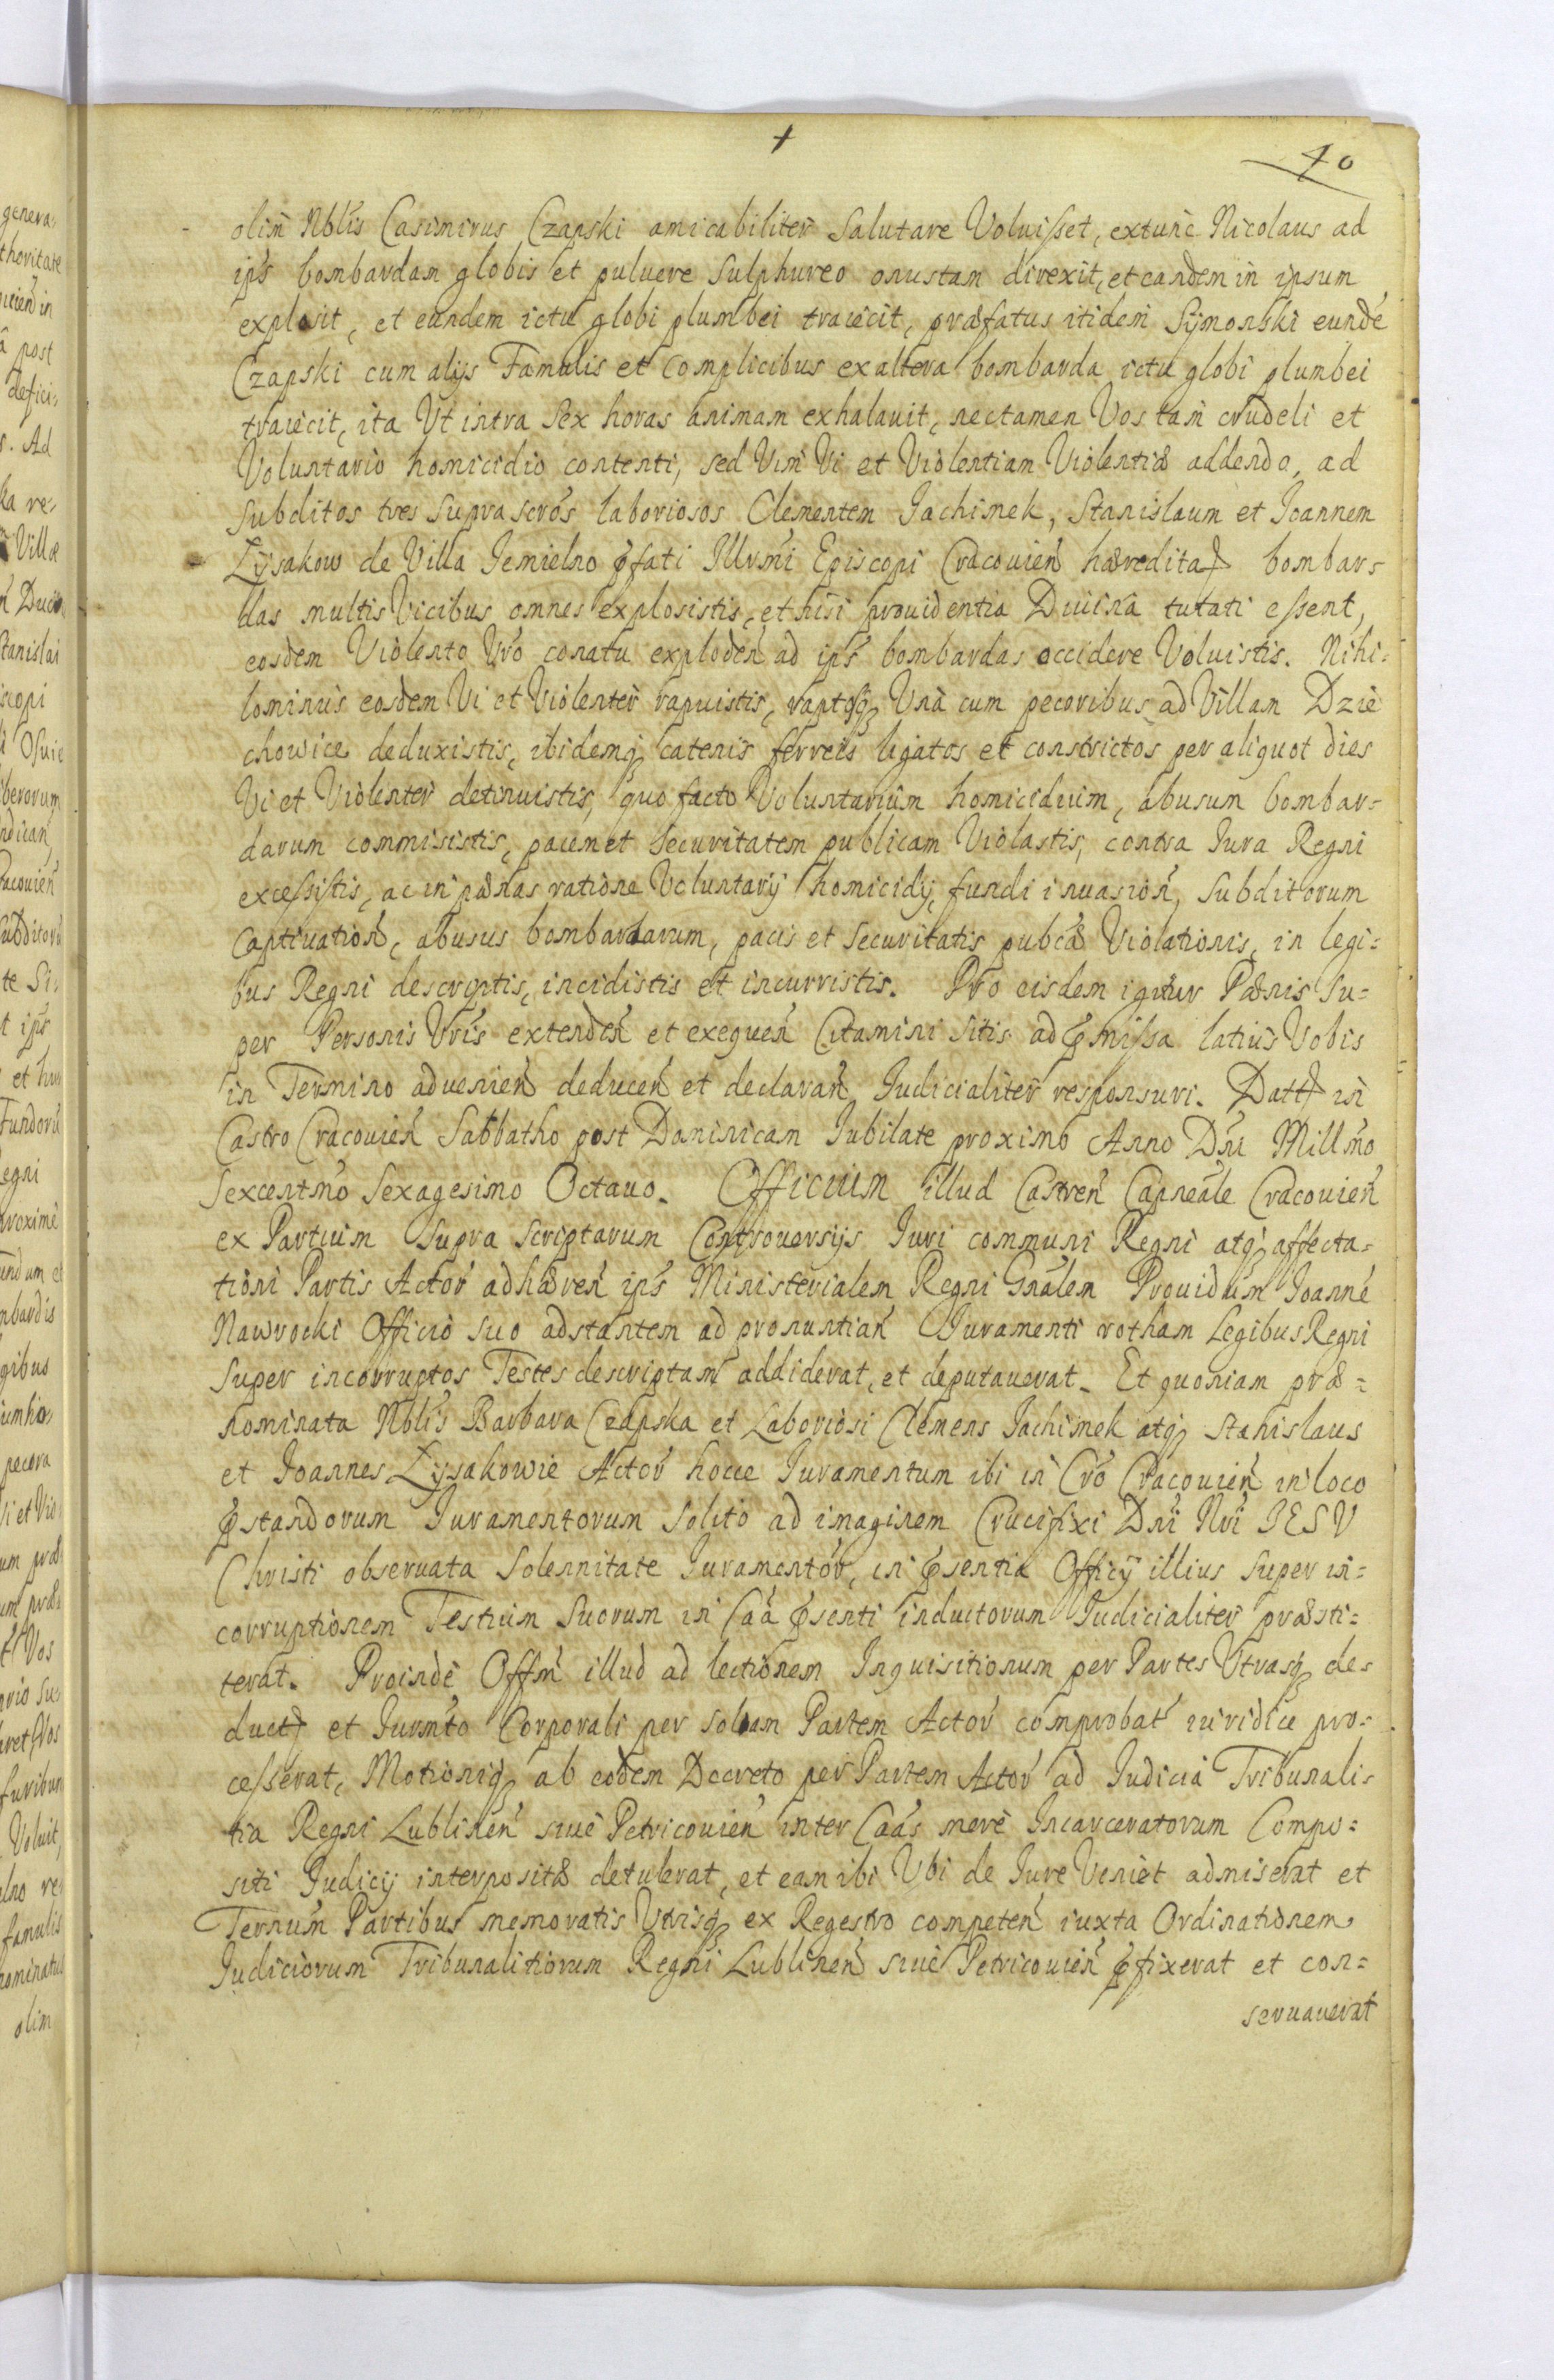 +
40
olim Nblis Casimirus Czapski amicabiliter salutare Voluisset, extunc Nicolaus ad
ips bombardam globis et puluere sulphureo onustam direxit, et eandem in ipsum
explosit, et eundem ictu globi plumbei traiecit, præfatus itidem Symonski eundé
Czapski cum alijs Famulis et complicibus ex altera bombarda ictu globi plumbei
traiecit, ita Ut intra sex horas animam exhalauit, nec tamen Vos tam crudeli et
Voluntario homicidio contenti, sed Vim Vi et Violentiam Violentiæ addendo, ad
subditos tres suprascros laboriosos Clementem Jachimek, Stanislaum et Joannem
Łysakow de Villa Jemielno pfati Illrmi Episcopi Cracouien hæredita bombar-
das multis Vicibus omnes explosistis, et nisi prouidentia Diuina tutati essent,
eosdem Violento Vro conatu exploden ad ips bombardas occidere Voluistis. Nihi-
lominus eosdem Vi et Violenter rapuistis, raptosq Una cum pecoribus ad Villam Dzie
chowice deduxistis, ibidemq catenis ferreis ligatos et constrictos per aliquot dies
Vi et Violenter detinuistis, quo facto Voluntarium homicidium, abusum bombar-
darum commisistis, pacem et securitatem publicam Violastis, contra Iura Regni
excessistis, ac in pænas ratione Voluntarij homicidij, fundi inuasion, subditorum
captiuation, abusus bombardarum, pacis et securitatis pubcæ Violationis, in legi-
bus Regni descriptis, incidistis et incurristis. Pro eisdem igitur Pænis su-
per Personis Vris extenden et exequen Citamini sitis ad pmissa latius Vobis
in Termino aduenien deducen et declaran Iudicialiter responsuri. Datt in
Castro Cracouien Sabbatho post Dominicam Iubilate proximo Anno Dni Millmo
sexcentmo sexagesimo Octauo. Officium illud Castren Capneale Cracouien
ex Partium supra scriptarum Controuersijs Iuri communi Regni atq affecta-
tioni Partis Actor adhæren ips Ministerialem Regni Gnalem Prouidum Joanné
Nawrocki Officio suo adstantem ad pronuntian Iuramenti rotham Legibus Regni
super incorruptos Testes descriptam addiderat, et deputauerat. Et quoniam præ-
nominata Nblis Barbara Czapska et Laboriosi Clemens Jachimek atq Stanislaus
et Joannes Łysakowie Actor hocce Iuramentum ibi in Cro Cracouien in loco
pstandorum Iuramentorum solito ad imaginem Crucifixi Dni Nri IESV
Christi obseruata solennitate Iuramentor, in psentia Officij illius super in-
corruptionem Testium suorum in Caa psenti inductorum Iudicialiter præsti-
terat. Proinde Offm illud ad lectionem Inquisitionum per Partes Utrasq de-
duct et Iurmto Corporali per solam Partem Actor comprobat iuridice pro-
cesserat, Motioniq ab eodem Decreto per Partem Actor ad Iudicia Tribunali-
tia Regni Lublinen siue Petricouien inter Caas mere Incarceratorum Compo-
siti Iudicij interpositæ detulerat, et eam ibi Ubi de Iure Veniet admiserat et
Ternum Partibus memoratis Utrisq ex Regestro competen iuxta Ordinationem
Iudiciorum Tribunalitiorum Regni Lublinen siue Petricouien pfixerat et con-
seruauerat